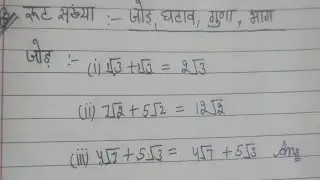 रूट संख्या :- जोड़, घटाव, गुणा, भाग
जोड़ :-
(i) √3 + √3 = 2√3
(ii) 7√2 + 5√2 = 12√2
(iii) 4√7 + 5√3 = 4√7 + 5√3 Ans